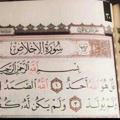 سُورَةُ الإِخْلَاصِ
بِسْمِ اللَّهِ الرَّحْمَٰنِ الرَّحِيمِ
هُوَ اللَّهُ أَحَدٌ ۝١ اللَّهُ الصَّمَدُ
يُولَدْ ۝٣ وَلَمْ يَكُن لَّهُ